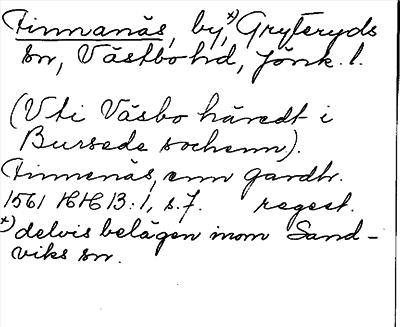 Finnanäs, by,x) Gryteryds
sn, Västbo hd, Jönk. l.
(Uti Väsbo häredt i
Bursede sochenn).
Finnenäs, enn gardh.
1561 HH B:1, s.7. regest.
x) delvis belägen inom Sand-
viks sn.